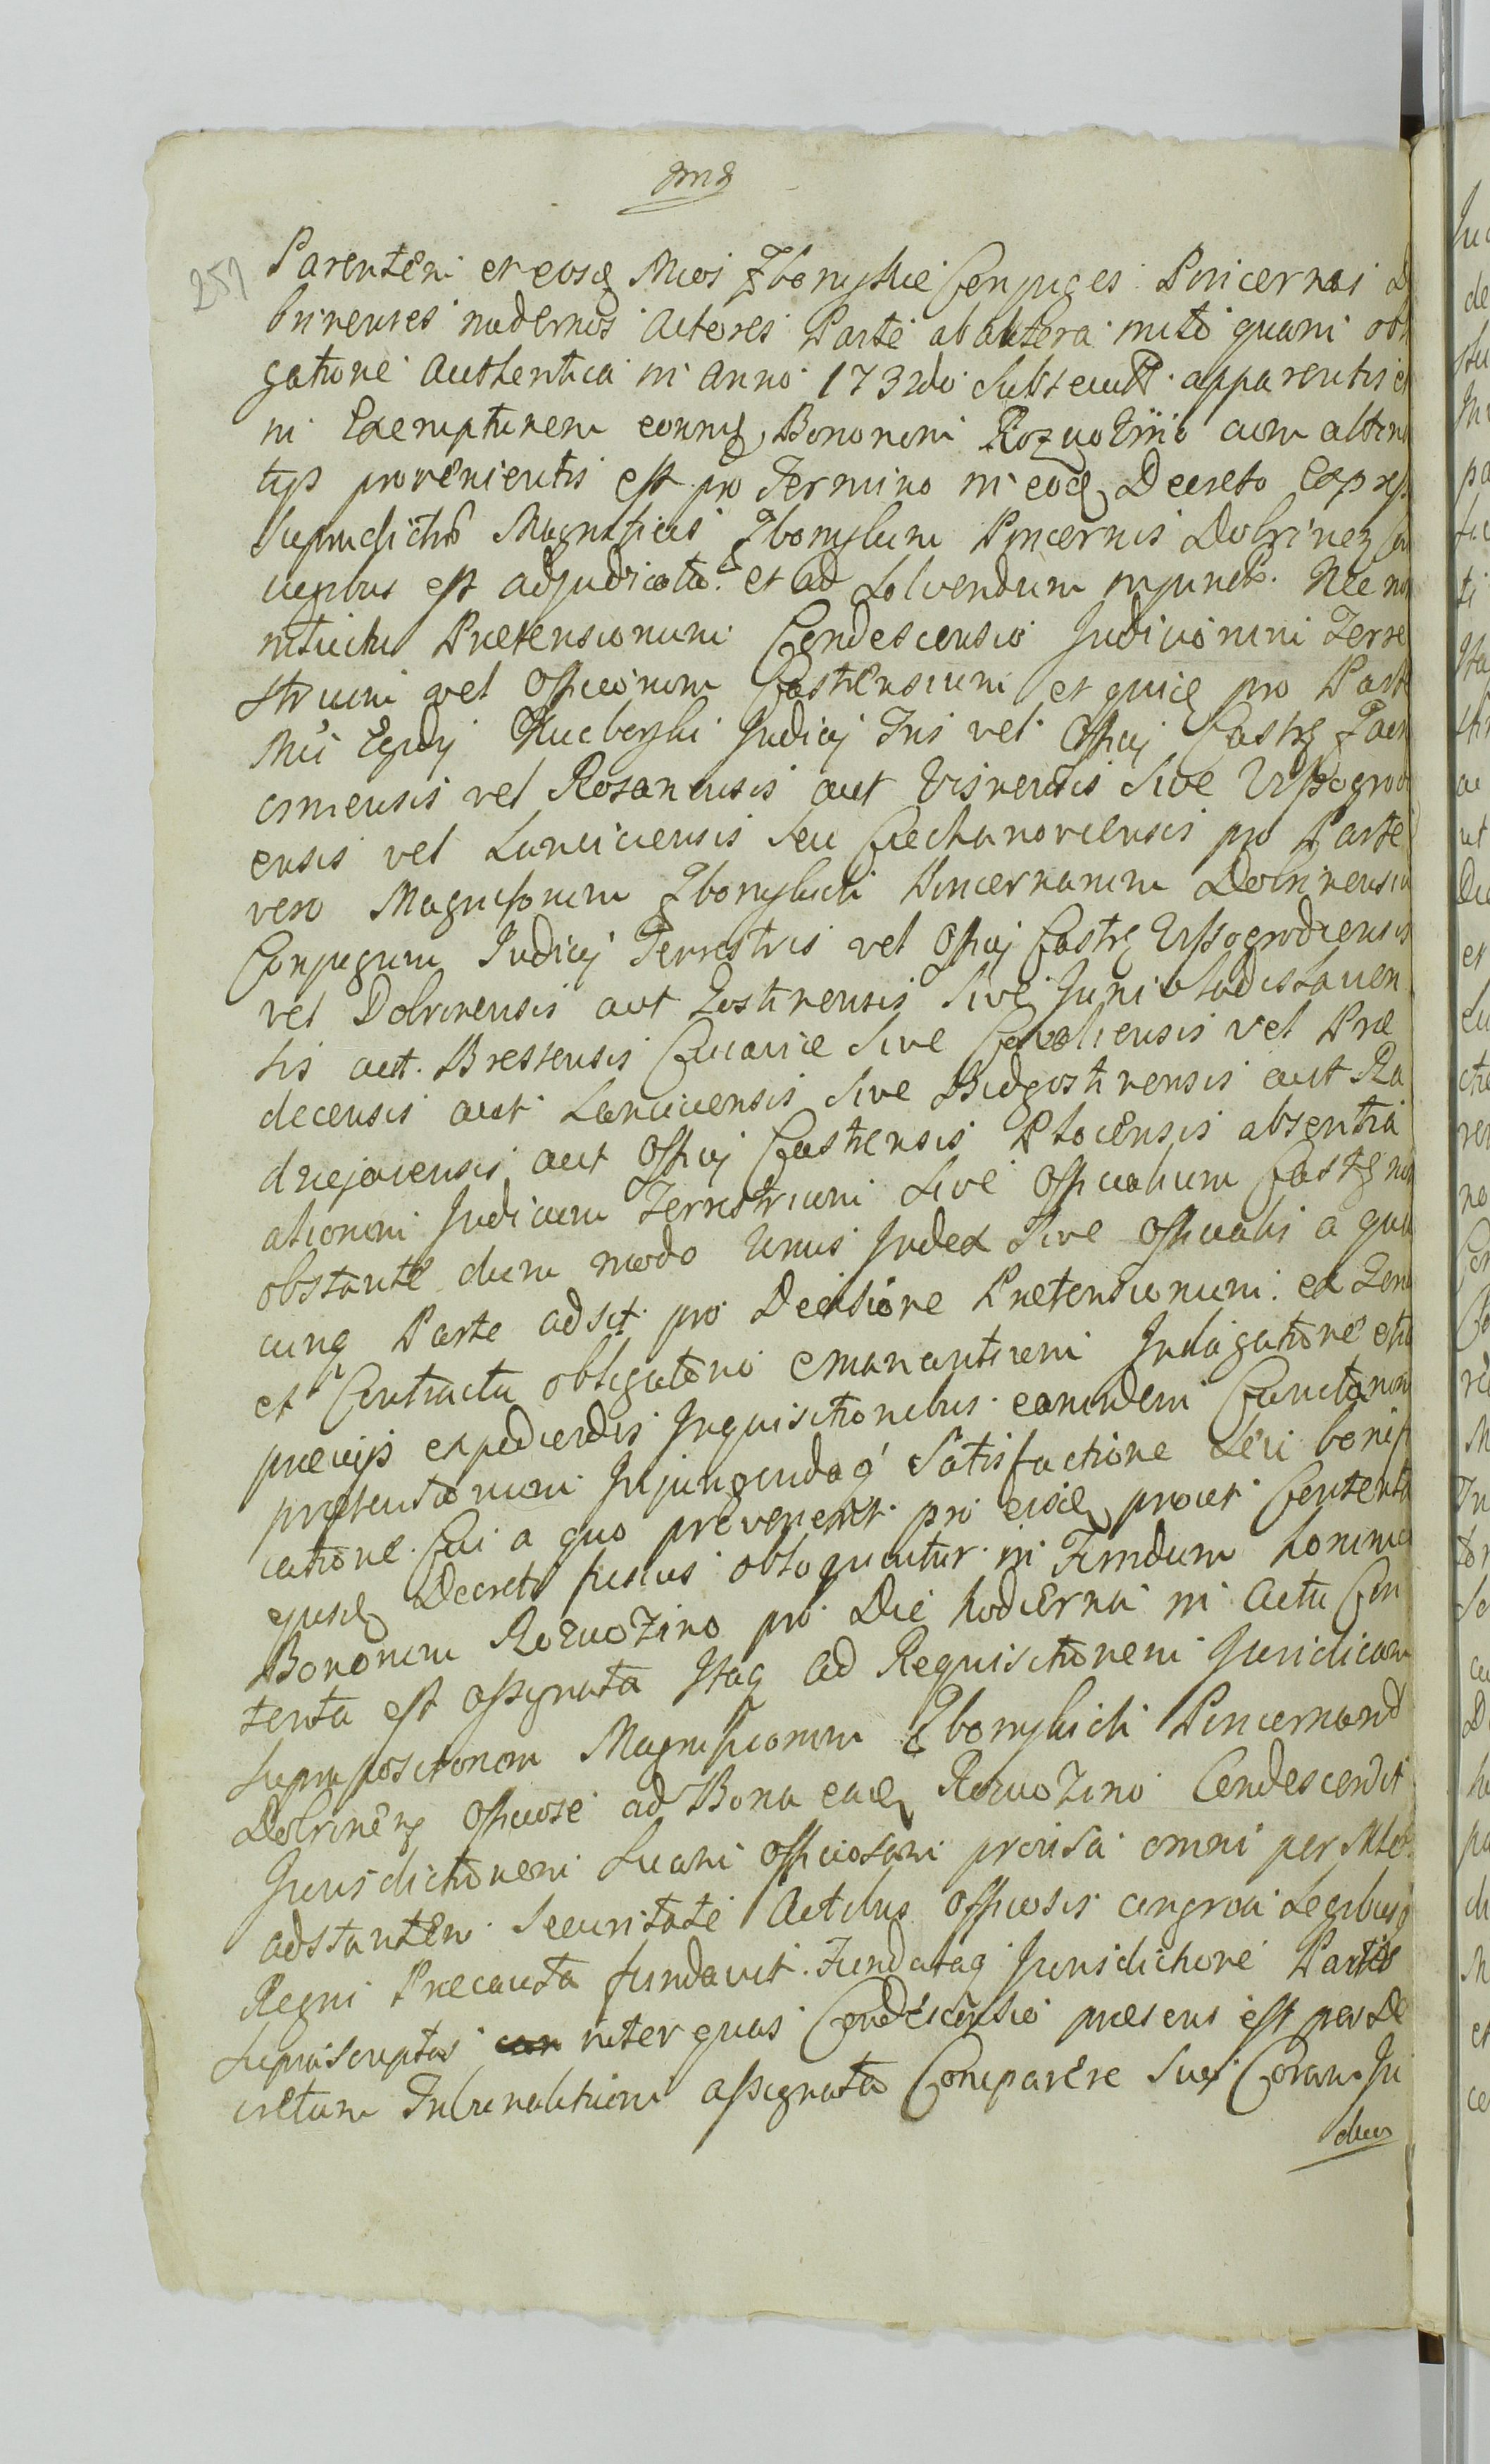 257
Parentem et eosq Mcos Zbomyskie Conjuges Pincernas D
brinenses modernos Actores Parte ab altera mito quam ob
gatione Authentica in Anno 1732do Subsecut apparentis et
in Exemptionem eorumq Bonorum Rozwozino cum attine
tys provenientis est pro Termino in eodq Decreto expres
Supradictis Magnificis Zbomyskim Pincernis Dobrinez Con
iugibus est adjudicata et ad Solvendum injuncta. Nec non
intuitu Pretensionum Condescensio Judiciorum Terre
strium vel Officiorum Castrensium et quidq pro Parte
Mci Egidy Judicij Tris vel Officij Castrg Zacro
cimensis vel Rosanensis aut Visnensis Sive Vissogrod
ensis vel Lanciciensis Seu Ciechanoviensis pro Parte
vero Magnificorum Zbomyskich Pincernarum Dobrinensiu
Conjugum Judicij Terrestris vel Officij Castrg Vissogrodiensis
vel Dobrinensis aut Gostinensis Sive Juniuladislavien
sis aut Brestensis Cujaviæ Sive Covaliensis vel Præ
decensis aut Lanciciensis Sive Bidgostinensis aut Ra
dziejoviensis aut Officij Castrensis Plocensis absentia
aliorum Judicum Terrestrium Sive Officialium Castrg non
obstante dum modo Unus Judex Sive Officialis a qua
cunq Parte adsit pro Decisione Pretensionum ex
et Contractu obligatorio emanantium Indagatione etia
prævijs expediendis Inquisitionibus earumdem Cunctarum
prætensionum Injungendaq Satisfactione Seu bonifi
catione Cui a quo provenerit pro eisdq prout Contenta
ejusdq Decreti fusius obloquuntur in Fundum honorum
Bonorum Rozwozino pro Die hodierna in Actu Con
tenta est assignata Itaq ad Requisitionem Juridicam
Supra positorum Magnificorum Zbomyskich Pincernarud
Dobrineng officiose ad Bona eadq Rozwozino Condescendit
Jurisdictionem Suam officiosam provisa omni per
adstantem Securitate Actibus officiosis congrua Legibusq
Regni Præcauta fundavit. Fundataq Jurisdictione Partes
Supra Scriptas inter quas Condescensio præsens est per De
cretum Tribunalitium assignata Comparere Suas Coram Ju
dicio